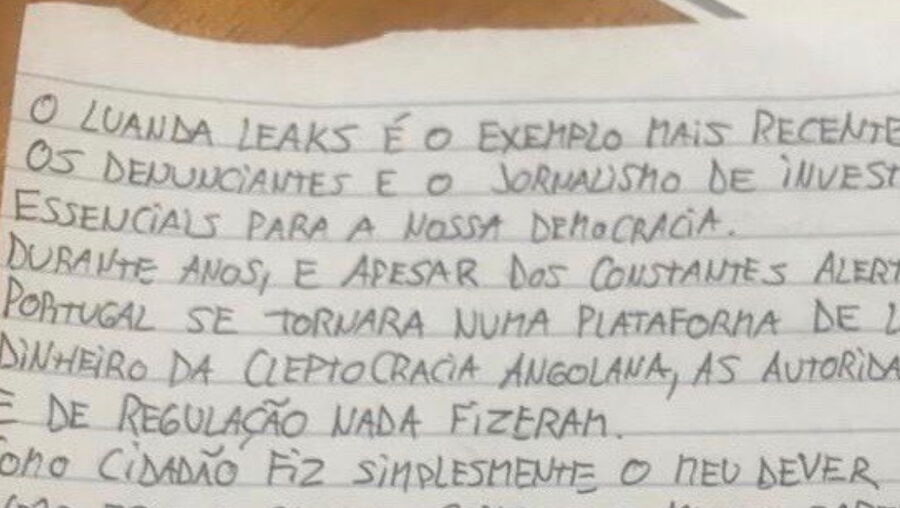 O LUANDA LEAKS É O EXEMPLO MAIS RECENTE
OS DENUNCIANTES E O JORNALISMO DE INVEST
ESSENCIAIS PARA A NOSSA DEMOCRACIA.
DURANTE ANOS, E APESAR DOS CONSTANTES ALERT
PORTUGAL SE TORNARA NUMA PLATAFORMA DE L
DINHEIRO DA CLEPTOCRACIA ANGOLANA, AS AUTORIDA
E DE REGULAÇÃO NADA FIZERAM.
OMO CIDADÃO FIZ SIMPLESMENTE O MEU DEVER